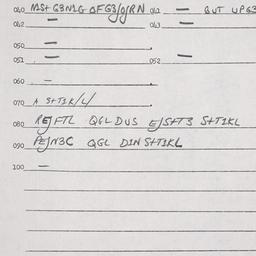 040 MS+G3N1G OFG3/O/RN 041 — QUT UPG3
042 — 043 —
050 —
051 — 052 —
060 —
070 A S+T1K/L/
080 REJFTL QGL DUS EJS+T3 S+T1KL
090 PEJN3C QGL DIN S+T1KL
100 —